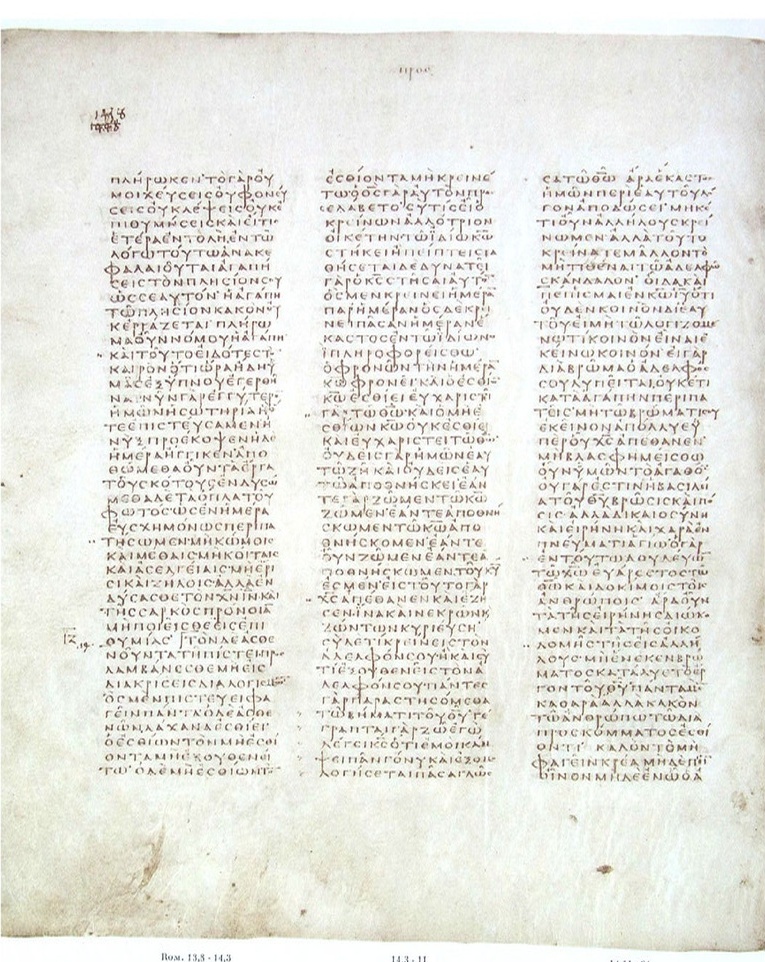 ΠΡΟϹ
ΠΛΗΡΩΚΕΝΤΟΓΑΡΟΥ
ΜΟΙΧΕΥϹΕΙϹΟΥΦΟΝΕΥ
ϹΕΙϹΟΥΚΛΕΨΕΙϹΟΥΚΕ
ΠΙΘΥΜΗϹΕΙϹΚΑΙΕΙΤΙϹ
ΕΤΕΡΑΕΝΤΟΛΗΕΝΤΩ
ΛΟΓΩΤΟΥΤΩΑΝΑΚΕ
ΦΑΛΑΙΟΥΤΑΙΑΓΑΠΗ
ϹΕΙϹΤΟΝΠΛΗϹΙΟΝϹΟΥ
ΩϹϹΕΑΥΤΟΝΗΑΓΑΠΗ
ΤΩΠΛΗϹΙΟΝΚΑΚΟΝΟΥ
ΚΕΡΓΑΖΕΤΑΙΠΛΗΡΩ
ΜΑΟΥΝΝΟΜΟΥΗΑΓΑΠΗ
ΚΑΙΤΟΥΤΟΕΙΔΟΤΕϹΤΟ
ΚΑΙΡΟΝΟΤΙΩΡΑΗΔΗΥ
ΜΑϹΕΞΥΠΝΟΥΕΓΕΡΘΗ
ΝΑΙΝΥΝΓΑΡΕΓΓΥΤΕΡΟ
ΗΜΩΝΗϹΩΤΗΡΙΑΗΟ
ΤΕΕΠΙϹΤΕΥϹΑΜΕΝΗ
ΝΥΞΠΡΟΕΚΟΨΕΝΗΔΕ
ΗΜΕΡΑΗΓΓΙΚΕΝΑΠΟ
ΘΩΜΕΘΑΟΥΝΤΑΕΡΓΑ
ΤΟΥϹΚΟΤΟΥϹΕΝΔΥϹΩ
ΜΕΘΑΔΕΤΑΟΠΛΑΤΟΥ
ΦΩΤΟϹΩϹΕΝΗΜΕΡΑ
ΕΥϹΧΗΜΟΝΩϹΠΕΡΙΠΑ
ΤΗϹΩΜΕΝΜΗΚΩΜΟΙϹ
ΚΑΙΜΕΘΑΙϹΜΗΚΟΙΤΑΙϹ
ΚΑΙΑϹΕΛΓΕΙΑΙϹΜΗΕΡΙ
ϹΙΚΑΙΖΗΛΟΙϹΑΛΛΑΕΝ
ΔΥϹΑϹΘΕΤΟΝΧΝΙΝΚΑΙ
ΤΗϹϹΑΡΚΟϹΠΡΟΝΟΙΑ
ΜΗΠΟΙΕΙϹΘΕΕΙϹΕΠΙ
ΘΥΜΙΑϹΤΟΝΔΕΑϹΘΕ
ΝΟΥΝΤΑΤΗΠΙϹΤΕΙΠΡΟ
ΛΑΜΒΑΝΕϹΘΕΜΗΕΙϹ
ΔΙΑΚΡΙϹΕΙϹΔΙΑΛΟΓΙϹΜΩ
ΟϹΜΕΝΠΙϹΤΕΥΕΙΦΑ
ΓΕΙΝΠΑΝΤΑΟΔΕΑϹΘΕ
ΝΩΝΛΑΧΑΝΑΕϹΘΙΕΙ
ΟΕϹΘΙΩΝΤΟΝΜΗΕϹΘΙ
ΟΝΤΑΜΗΕΞΟΥΘΕΝΕΙ
ΤΩΟΔΕΜΗΕϹΘΙΩΝΤΟ
ΕϹΘΙΟΝΤΑΜΗΚΡΕΙΝΕ
ΤΩΟΘϹΓΑΡΑΥΤΟΝΠΡΟ
ϹΕΛΑΒΕΤΟϹΥΤΙϹΕΙΟ
ΚΡΕΙΝΩΝΑΛΛΟΤΡΙΟΝ
ΟΙΚΕΤΗΝΤΩΙΔΙΩΚΩ
ϹΤΗΚΕΙΗΠΕΙΠΤΕΙϹΤΑ
ΘΗϹΕΤΑΙΔΕΔΥΝΑΤΕΙ
ΓΑΡΟΚϹϹΤΗϹΑΙΑΥΤΟ
ΟϹΜΕΝΚΡΕΙΝΕΙΗΜΕΡΑ
ΠΑΡΗΜΕΡΑΝΟϹΔΕΚΡΕΙ
ΝΕΙΠΑϹΑΝΗΜΕΡΑΝΕ
ΚΑϹΤΟϹΕΝΤΩΙΔΙΩΝΟΙ
ΠΛΗΡΟΦΟΡΕΙϹΘΩ
ΟΦΡΟΝΩΝΤΗΝΗΜΕΡΑ
ΚΩΦΡΟΝΕΙΚΑΙΟΕϹΘΙΩ
ΚΩΕϹΘΙΕΙΕΥΧΑΡΙϹΤΕΙ
ΓΑΡΤΩΘΩΚΑΙΟΜΗΕ
ϹΘΙΩΝΚΩΟΥΚΕϹΘΙΕΙ
ΚΑΙΕΥΧΑΡΙϹΤΕΙΤΩΘΩ
ΟΥΔΕΙϹΓΑΡΗΜΩΝΕΑΥ
ΤΩΖΗΚΑΙΟΥΔΕΙϹΕΑΥ
ΤΩΑΠΟΘΝΗϹΚΕΙΕΑΝ
ΤΕΓΑΡΖΩΜΕΝΤΩΚΩ
ΖΩΜΕΝΕΑΝΤΕΑΠΟΘΝΗ
ϹΚΩΜΕΝΤΩΚΩΑΠΟ
ΘΝΗϹΚΟΜΕΝΕΑΝΤΕ
ΟΥΝΖΩΜΕΝΕΑΝΤΕΑ
ΠΟΘΝΗϹΚΩΜΕΝΤΟΥΚΥ
ΕϹΜΕΝΕΙϹΤΟΥΤΟΓΑΡ
ΧϹΑΠΕΘΑΝΕΝΚΑΙΕΖΗ
ϹΕΝΙΝΑΚΑΙΝΕΚΡΩΝΚ
ΖΩΝΤΩΝΚΥΡΙΕΥϹΗ
ϹΥΔΕΤΙΚΡΕΙΝΕΙϹΤΟΝ
ΑΔΕΛΦΟΝϹΟΥΗΚΑΙϹΥ
ΤΙΕΞΟΥΘΕΝΕΙϹΤΟΝΑ
ΔΕΛΦΟΝϹΟΥΠΑΝΤΕϹ
ΓΑΡΠΑΡΑϹΤΗϹΟΜΕΘΑ
ΤΩΒΗΜΑΤΙΤΟΥΘΥΓΕ
ΓΡΑΠΤΑΙΓΑΡΖΩΕΓΩ
ΛΕΓΕΙΚϹΟΤΙΕΜΟΙΚΑΜ
ΨΕΙΠΑΝΓΟΝΥΚΑΙΕΞΟΜΟ
ΛΟΓΗϹΕΤΑΙΠΑϹΑΓΛΩϹ
ϹΑΤΩΘΩΑΡΑΕΚΑϹΤΟϹ
ΗΜΩΝΠΕΡΙΕΑΥΤΟΥΛΟ
ΓΟΝΑΠΟΔΩϹΕΙΜΗΚΕ
ΤΙΟΥΝΑΛΛΗΛΟΥϹΚΡΕΙ
ΝΩΜΕΝΑΛΛΑΤΟΥΤΟ
ΚΡΕΙΝΑΤΕΜΑΛΛΟΝΤΟ
ΜΗΤΙΘΕΝΑΙΤΩΑΔΕΛΦΩ
ϹΚΑΝΔΑΛΟΝΟΙΔΑΚΑΙ
ΠΕΠΕΙϹΜΑΙΕΝΚΩΙΥΟΤΙ
ΟΥΔΕΝΚΟΙΝΟΝΔΙΕΑΥ
ΤΟΥΕΙΜΗΤΩΛΟΓΙΖΟΜΕ
ΝΩΤΙΚΟΙΝΟΝΕΙΝΑΙΕ
ΚΕΙΝΩΚΟΙΝΟΝΕΙΓΑΡ
ΔΙΑΒΡΩΜΑΟΑΔΕΛΦΟϹ
ϹΟΥΛΥΠΕΙΤΑΙΟΥΚΕΤΙ
ΚΑΤΑΑΓΑΠΗΝΠΕΡΙΠΑ
ΤΕΙϹΜΗΤΩΒΡΩΜΑΤΙϹΟΥ
ΕΚΕΙΝΟΝΑΠΟΛΛΥΕΥ
ΠΕΡΟΥΧϹΑΠΕΘΑΝΕΝ
ΜΗΒΛΑϹΦΗΜΕΙϹΘΩ
ΟΥΝΥΜΩΝΤΟΑΓΑΘΟ
ΟΥΓΑΡΕϹΤΙΝΗΒΑϹΙΛΕΙ
ΑΤΟΥΘΥΒΡΩϹΙϹΚΑΙΠΟ
ϹΙϹΑΛΛΑΔΙΚΑΙΟϹΥΝΗ
ΚΑΙΕΙΡΗΝΗΚΑΙΧΑΡΑΕΝ
ΠΝΕΥΜΑΤΙΑΓΙΩΟΓΑΡ
ΕΝΤΟΥΤΩΔΟΥΛΕΥΩ
ΤΩΧΩΕΥΑΡΕϹΤΟϹΤΩ
ΘΩΚΑΙΔΟΚΙΜΟΙϹΤΟΙϹ
ΑΝΘΡΩΠΟΙϹΑΡΑΟΥΝ
ΤΑΤΗϹΕΙΡΗΝΗϹΔΙΩΚΟ
ΜΕΝΚΑΙΤΑΤΗϹΟΙΚΟ
ΔΟΜΗϹΤΗϹΕΙϹΑΛΛΗ
ΛΟΥϹΜΗΕΝΕΚΕΝΒΡΩ
ΜΑΤΟϹΚΑΤΑΛΥΕΤΟΕΡ
ΓΟΝΤΟΥΘΥΠΑΝΤΑΜΕ
ΚΑΘΑΡΑΑΛΛΑΚΑΚΟΝ
ΤΩΑΝΘΡΩΠΩΤΩΔΙΑ
ΠΡΟϹΚΟΜΜΑΤΟϹΕϹΘΙ
ΟΝΤΙΚΑΛΟΝΤΟΜΗ
ΦΑΓΕΙΝΚΡΕΑΜΗΔΕΠΕΙ
ΟΙΝΟΝΜΗΔΕΕΝΩΟΑ
Rom. 13,8 - 14,3
14,3 - 11